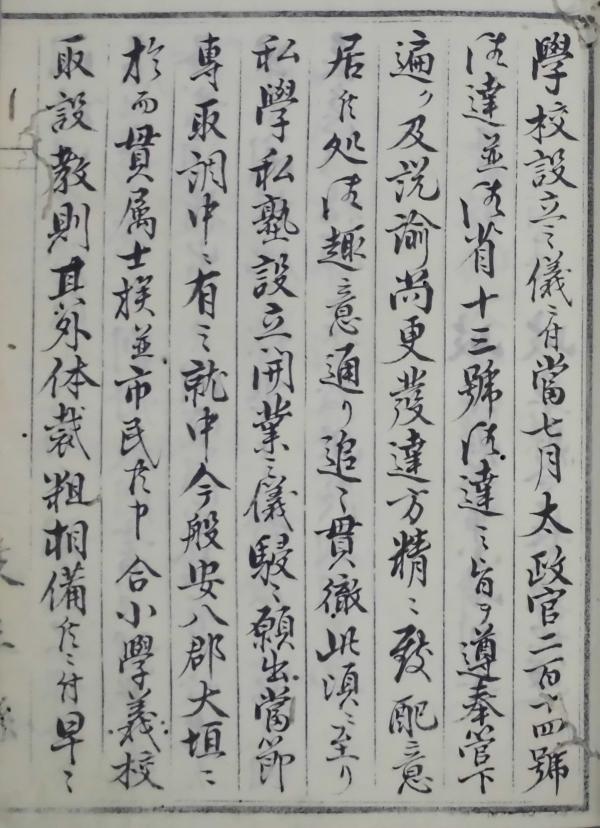 學校設立之儀ニ付當七月太政官二百十四號
御達並御省十三號御達之旨ヲ遵奉管下
遍ク及説諭尚更發達方精々致配意
居候処御趣意通リ追々貫徹此頃ニ至リ
私學私塾設立開業之儀駸々願出當節
専取調中ニ有之就中今般安八郡大垣ニ
於而貫属士族並市民共申合小學義校
取設教則其外体裁粗相備候ニ付早々